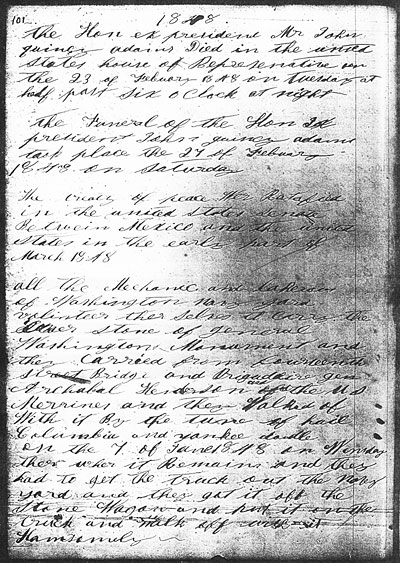 101
1848.
the Hon ex president Mr John
quincy adams Died in the united
states house of Representative on
the 23 of Febuary 1848 on tuesday at
half past six o Clock at night
the Funeral of the Hon Ex
president John quincy adams
took place the 27 of Febuary
1848 on Saturday
The treaty of peace Was Ratefied
in the united States Senate
Betwein Mexico and the united
states in the early part of
March 1848
all the Mechanic and
of Washington navy yard
volunteer ther selves to carry the
stone of general
Washingtons Monument and
they Carried from fourteenth
Street Bridge and Brigadeire gen
Archabal Henderson and the U S
Merrines and they Walked of
With it By the tune of hail
Columbia and yankee doodle
on the 7 of June 1848 on
ther wher it Remains and they
had to get the truck out the navy
yard and they got it off the
Stone Wagon and put it on the
truck and Walk off with it
Hansomely